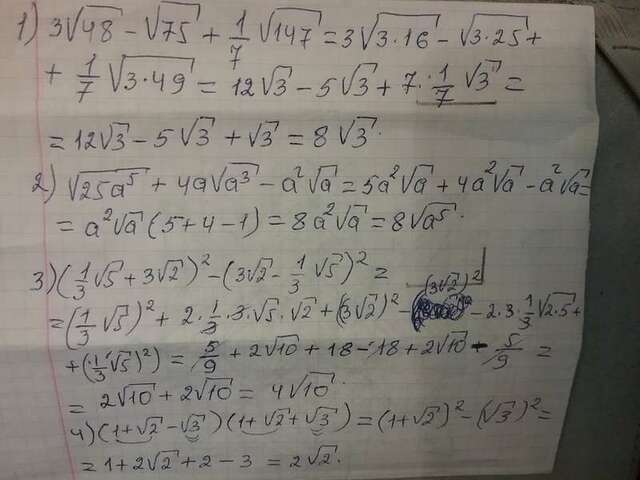 1) 3√48 − √75 + 1/7 √147 = 3√3·16 − √3·25 +
+ 1/7 √3·49 = 12√3 − 5√3 + 7·1/7 √3 =
= 12√3 − 5√3 + √3 = 8√3.
2) √25a⁵ + 4a√a³ − a²√a = 5a²√a + 4a²√a − a²√a =
= a²√a (5+4−1) = 8a²√a = 8√a⁵.
3) (1/3 √5 + 3√2)² − (3√2 − 1/3 √5)² =
= (1/3 √5)² + 2·1/3·3·√5·√2 + (3√2)² − (3√2)² − 2·3·1/3 √2·5 +
+ (1/3 √5)²) = 5/9 + 2√10 + 18 − 18 + 2√10 − 5/9 =
= 2√10 + 2√10 = 4√10.
4) (1+√2 − √3)(1+√2 + √3) = (1+√2)² − (√3)² =
= 1 + 2√2 + 2 − 3 = 2√2.